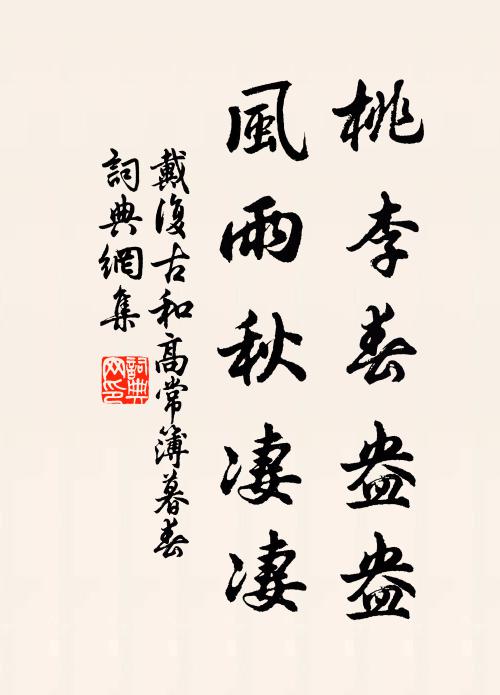 桃李春盎盎
風雨秋淒淒
戴復古和高常簿暮春
詞典網集
詞典网印